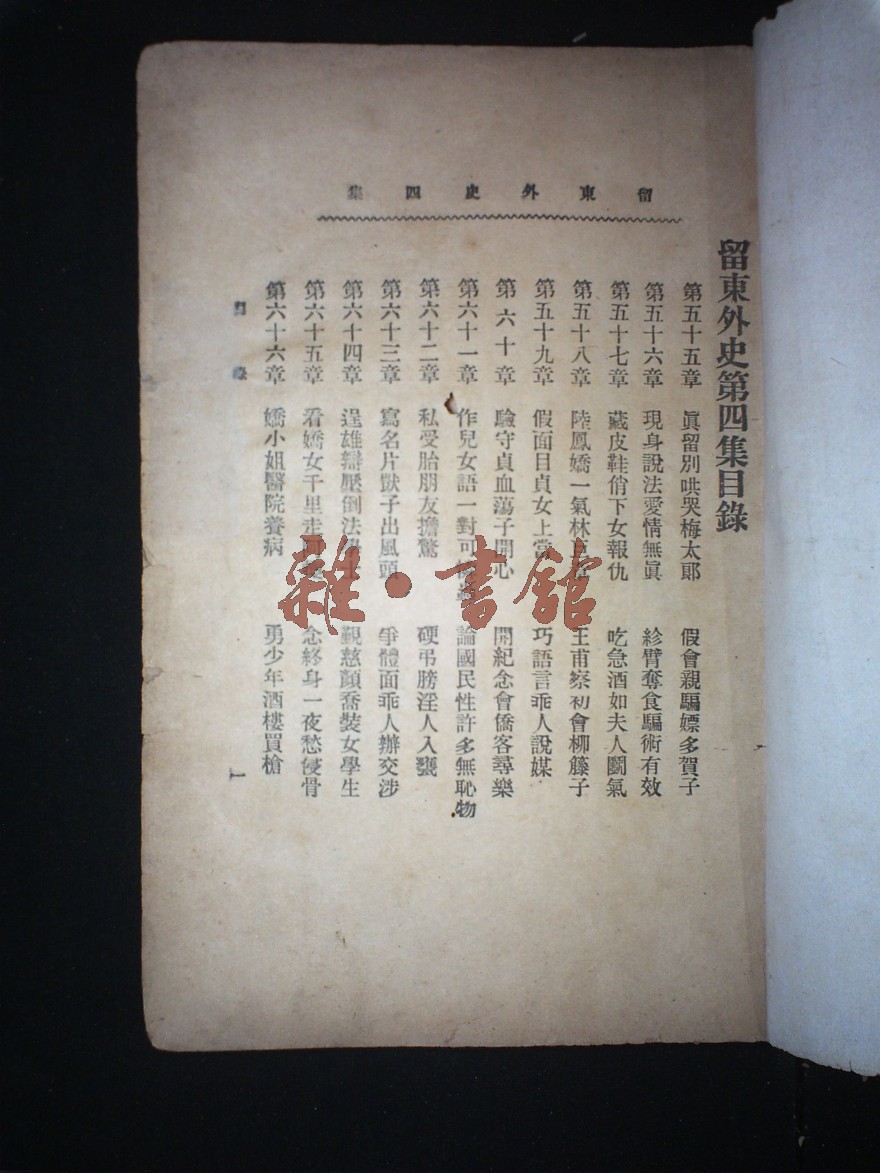 留東外史四集
留東外史第四集目錄
第五十五章 眞留別哄哭梅太郞 假會親騙嫖多賀子
第五十六章 現身說法愛情無眞 紾臂奪食騙術有效
第五十七章 藏皮鞋俏下女報仇 吃急酒如夫人鬬氣
第五十八章 陸鳳嬌一氣林 王甫察初會柳藤子
第五十九章 假面目貞女上當 巧語言乖人說媒
第六十章 驗守貞血蕩子開心 開紀念會僑客尋樂
第六十一章 作兒女語一對可 論國民性許多無恥物
第六十二章 私受胎朋友擔驚 硬弔膀淫人入甕
第六十三章 寫名片獃子出風頭 爭體面乖人辦交涉
第六十四章 逞雄辯壓倒法 覲慈顏喬裝女學生
第六十五章 看嬌女千里走 念終身一夜愁侵骨
第六十六章 嬌小姐醫院養病 勇少年酒樓買槍
目錄
一
雜·書館